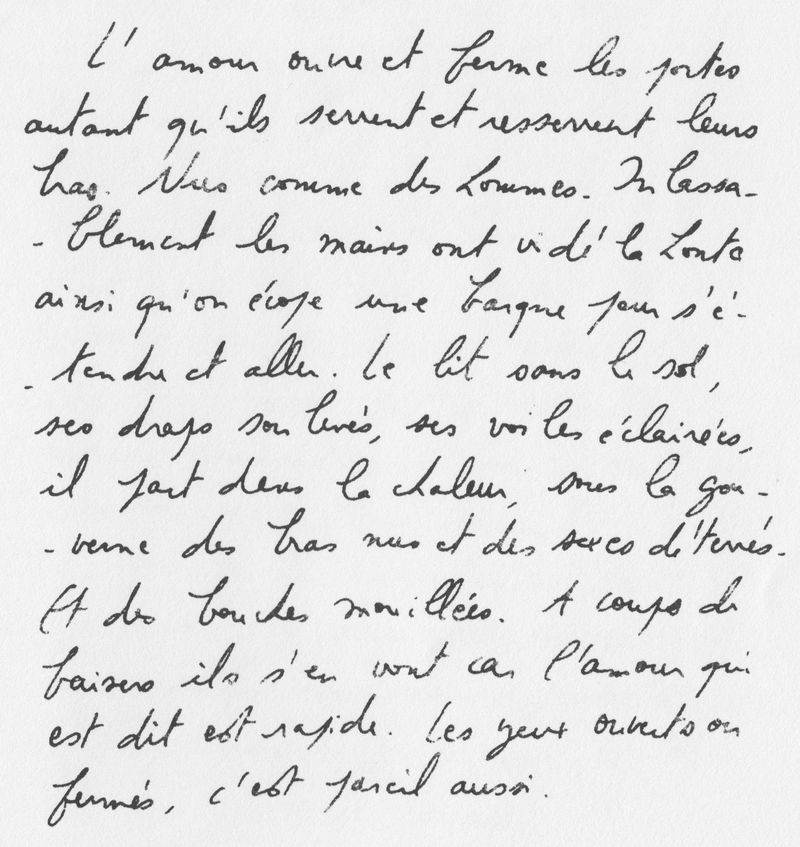 L'amour ouvre et ferme les portes
autant qu'ils serrent et resserrent leurs
bras. Nus comme des hommes. Inlassa-
- blement les mains ont vidé la honte
ainsi qu'on écope une barque pour s'é-
- tendre et aller. Le lit sans le sol,
ses draps soulevés, ses voiles éclairées,
il part dans la chaleur, sous la gou-
- verne des bras nus et des sexes déterrés.
Et des bouches mouillées. A coups de
baisers ils s'en vont car l'amour qui
est dit est rapide. Les yeux ouverts ou
fermés, c'est pareil aussi.